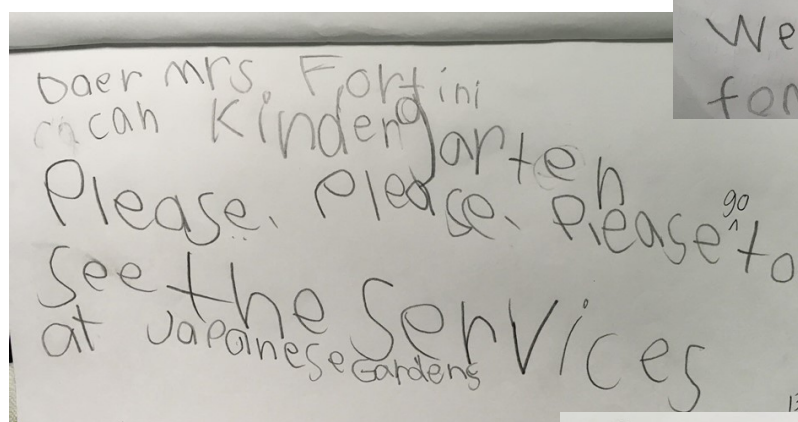 Daer Mrs. Fortini
can Kindergarten
Please, Please, Please go to
see the Services
at Japanese Gardens
We
for